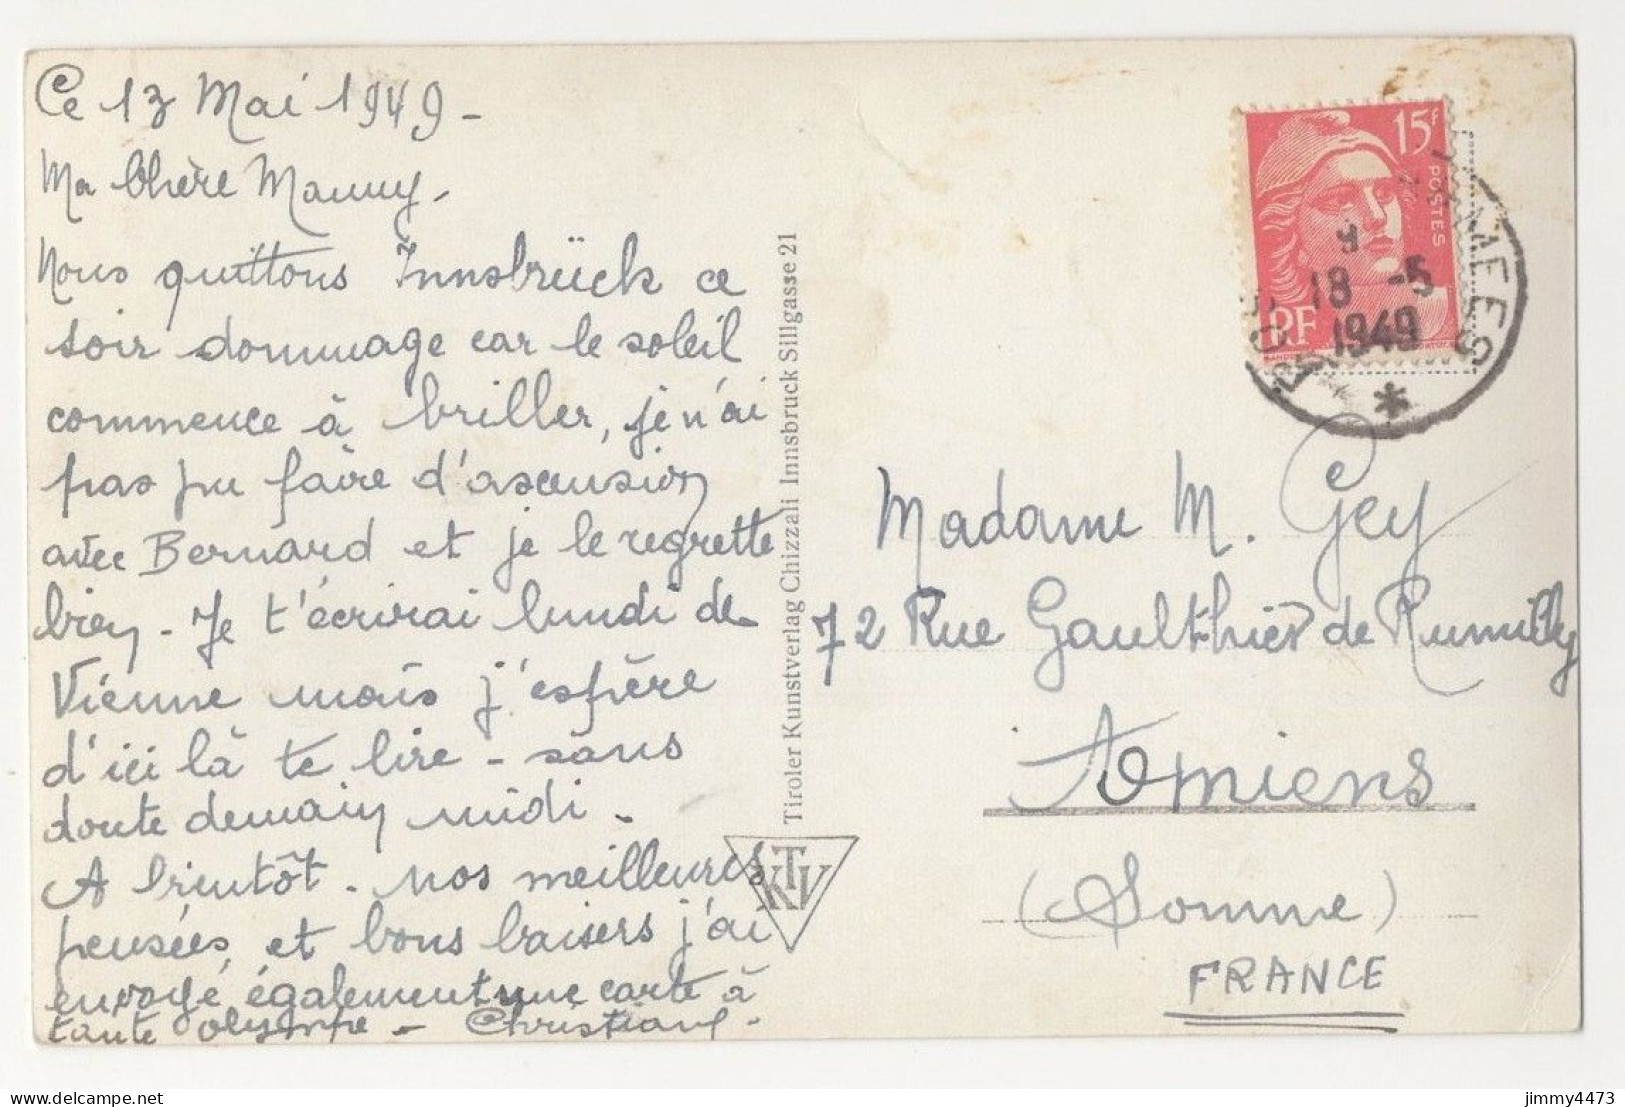 Ce 13 Mai 1949 -
Ma Chère Mamy -
Nous quittons Innsbrück ce
soir dommage car le soleil
commence à briller, je n'ai
pas pu faire d'ascension
avec Bernard et je le regrette
bien - Je t'écrirai lundi de
Vienne mais j'espère
d'ici là te lire - sans
doute demain midi -
A bientôt - nos meilleures
pensées, et bons baisers j'ai
envoyé également une carte à
tante Olympe - Christian -
Tiroler Kunstverlag Chizzali Innsbruck Sillgasse 21
KTV
15F
POSTES
RF
18 -5
1949
POSTE AUX ARMEES
*
Madame M. Gey
72 Rue Gaulthier de Rumilly
Amiens
(Somme)
FRANCE
jimmy4473
delcampe.net